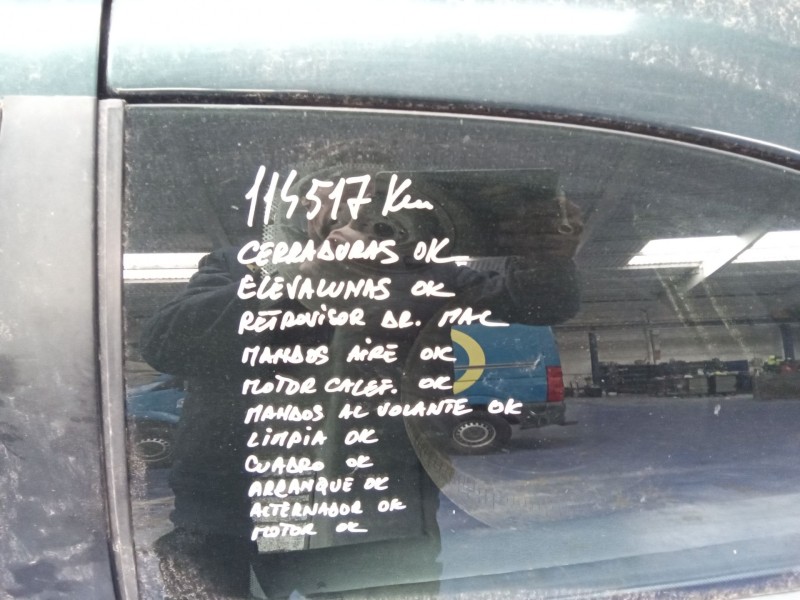 114517 Km
CERRADURAS OK
ELEVALUNAS OK
RETROVISOR DR. MAL
MANDOS AIRE OK
MOTOR CALEF. OK
MANDOS AL VOLANTE OK
LIMPIA OK
CUADRO OK
ARRANQUE OK
ALTERNADOR OK
MOTOR OK